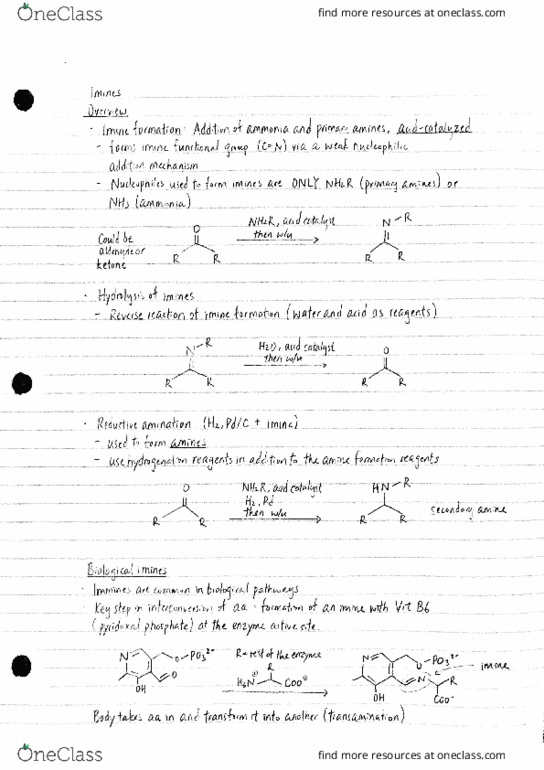 OneClass
find more resources at oneclass.com
Imines
Overview
- Imine formation: Addition of ammonia and primary amines, acid-catalyzed
- forms imine functional group (C=N) via a weak nucleophilic
addition mechanism
- Nucleophiles used to form imines are ONLY NH2R (primary amines) or
NH3 (ammonia)
Could be
aldehyde or
ketone
O
R R
NH2R, acid catalyst
then w/u
N-R
R R
· Hydrolysis of imines
- Reverse reaction of imine formation (water and acid as reagents)
N-R
R R
H2O, acid catalyst
then w/u
O
R R
· Reductive amination (H2, Pd/C + imine)
- used to form amines
- use hydrogenation reagents in addition to the amine formation reagents
O
R R
NH2R, acid catalyst
H2, Pd
then w/u
HN-R
R R
secondary amine
Biological imines
· Immines are common in biological pathways
· Key step in interconversion of aa: formation of an imine with Vit B6
(pyridoxal phosphate) at the enzyme active site.
N
O-PO3²⁻
O
OH
R = rest of the enzyme
R
H3N⊕
COO⊖
N
O-PO3²⁻
N
R
OH
COO⁻
imine
Body takes aa in and transform it into another (transamination)
OneClass
find more resources at oneclass.com